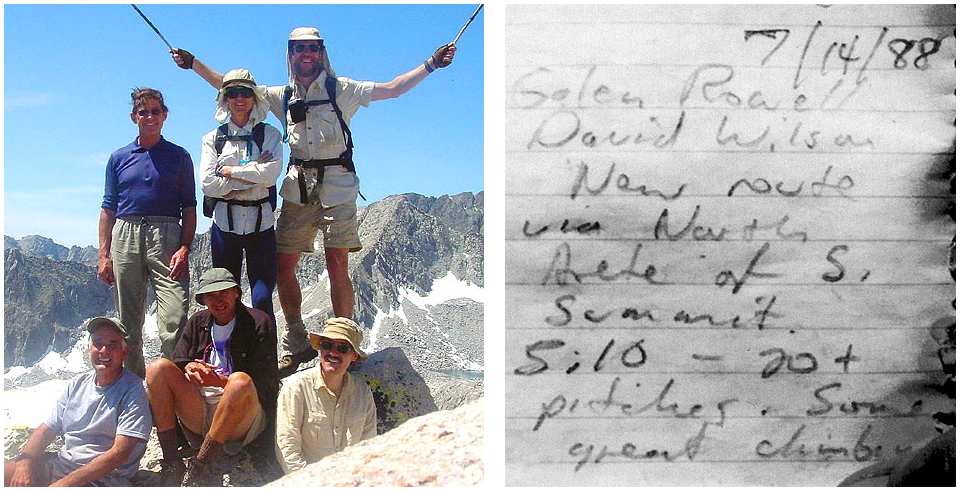 7/14/88
Galen Rowell
David Wilson
New route
via North
Arete of S.
Summit.
5.10 - 20+
pitches. Some
great climbing